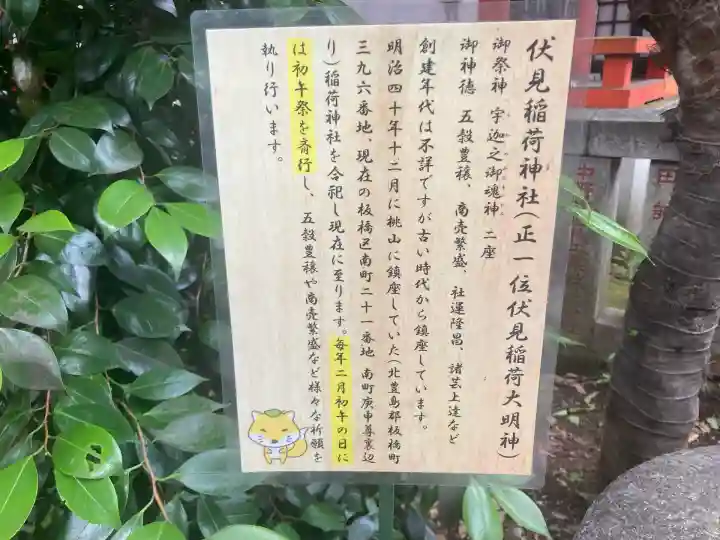 伏見稲荷神社(正一位伏見稲荷大明神)
御祭神 宇迦之御魂神 二座
御神徳 五穀豊穣、商売繁盛、社運隆昌、諸芸上達など
創建年代は不詳ですが古い時代から鎮座しています。
明治四十年十二月に桃山に鎮座していた(北豊島郡板橋町
三九六番地、現在の板橋区南町二十一番地 南町庚申尊裏辺
り)稲荷神社を合祀し現在に至ります。毎年二月初午の日に
は初午祭を斎行し、五穀豊穣や商売繁盛など様々な祈願を
執り行います。